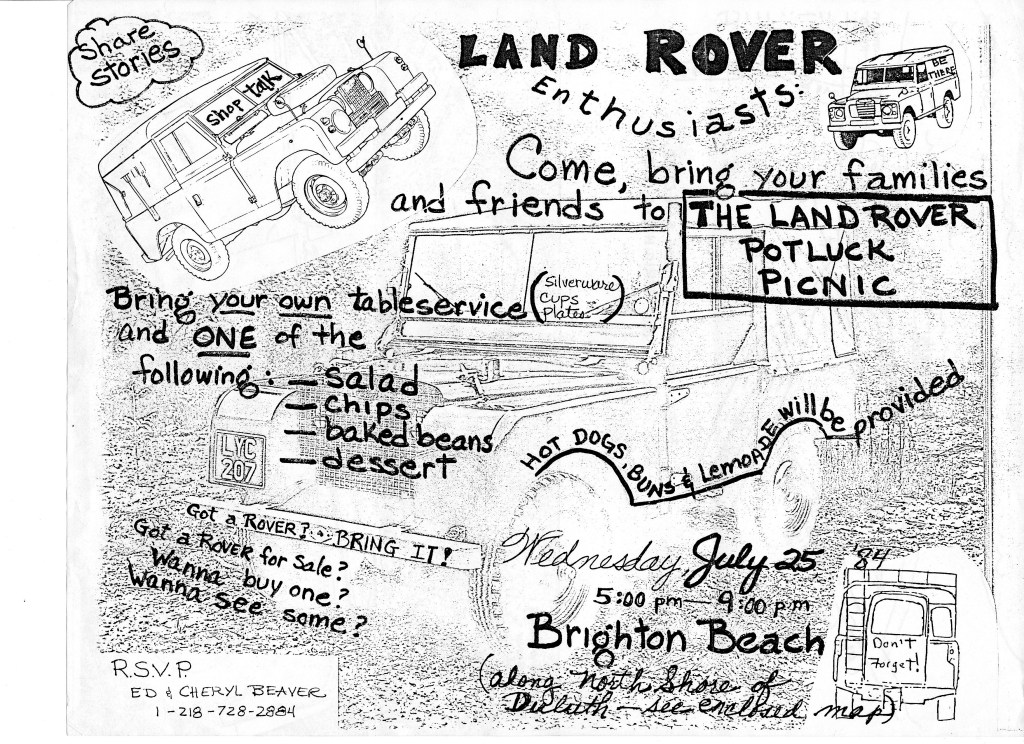 Share
stories
shop talk
LAND ROVER
Enthusiasts:
BE
THERE
Come, bring your families
and friends to THE LAND ROVER
POTLUCK
PICNIC
Bring your own tableservice (Silverware
cups
plates)
and ONE of the
following: — salad
— chips
— baked beans
— dessert
LYC
207
HOT DOGS, BUNS & LEMOADE will be provided
Got a ROVER? - BRING IT!
Got a ROVER for Sale?
Wanna buy one?
Wanna see some?
Wednesday, July 25, '84
5:00 pm — 9:00 pm
Brighton Beach
(along North Shore of
Duluth — see enclosed map)
Don't
forget!
R.S.V.P.
ED & CHERYL BEAVER
1-218-728-2884